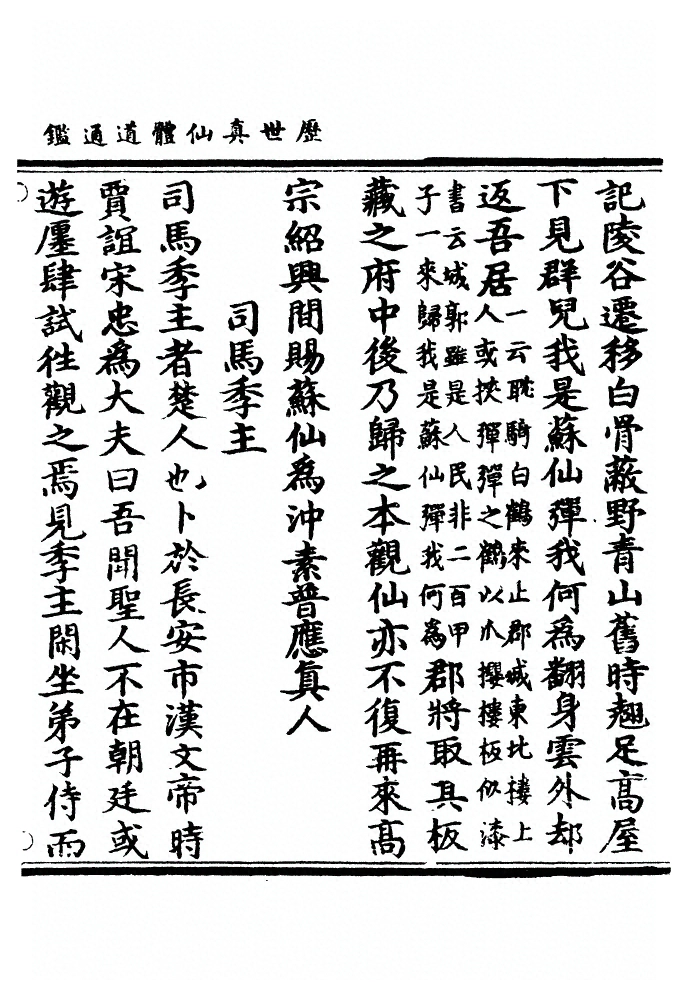 歷世真仙體道通鑑
記陵谷遷移白骨蔽野青山舊時翹足高屋
下見群兒我是蘇仙彈我何為翻身雲外却
返吾居一云耽騎白鶴來止郡城東北樓上
人或挾彈彈之鶴以爪攫樓板似漆
書云城郭雖是人民非二百甲
子一來歸我是蘇仙彈我何為郡將取其板
藏之府中後乃歸之本觀仙亦不復再來高
宗紹興間賜蘇仙為沖素普應真人
司馬季主
司馬季主者楚人也卜於長安市漢文帝時
賈誼宋忠為大夫曰吾聞聖人不在朝廷或
遊廛肆試往觀之焉見季主閑坐弟子侍而